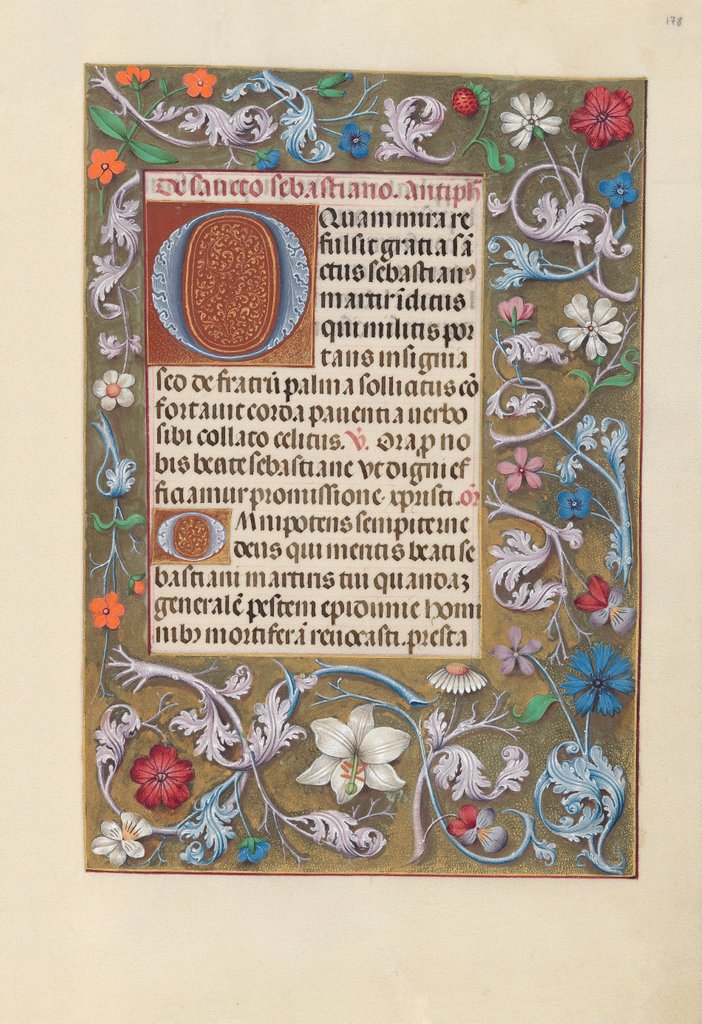 178
De sancto sebastiano. Antiph
O Quam mira re
fulsit gratia sā
ctus sebastianꝰ
martir īditus
qui militis por
tans insignia
sed de fratrū palma sollicitus cō
fortauit corda pauentia uerbo
sibi collato celitus. V̇. Ora ꝓ no
bis beate sebastiane Vt digni ef
ficiamur promissione xpristi. or̄
OMnipotens sempiterne
deus qui meritis beati se
bastiani martiris tui quandaꝫ
generalē pestem epidimie homi
nibꝫ mortiferā reuocasti. presta